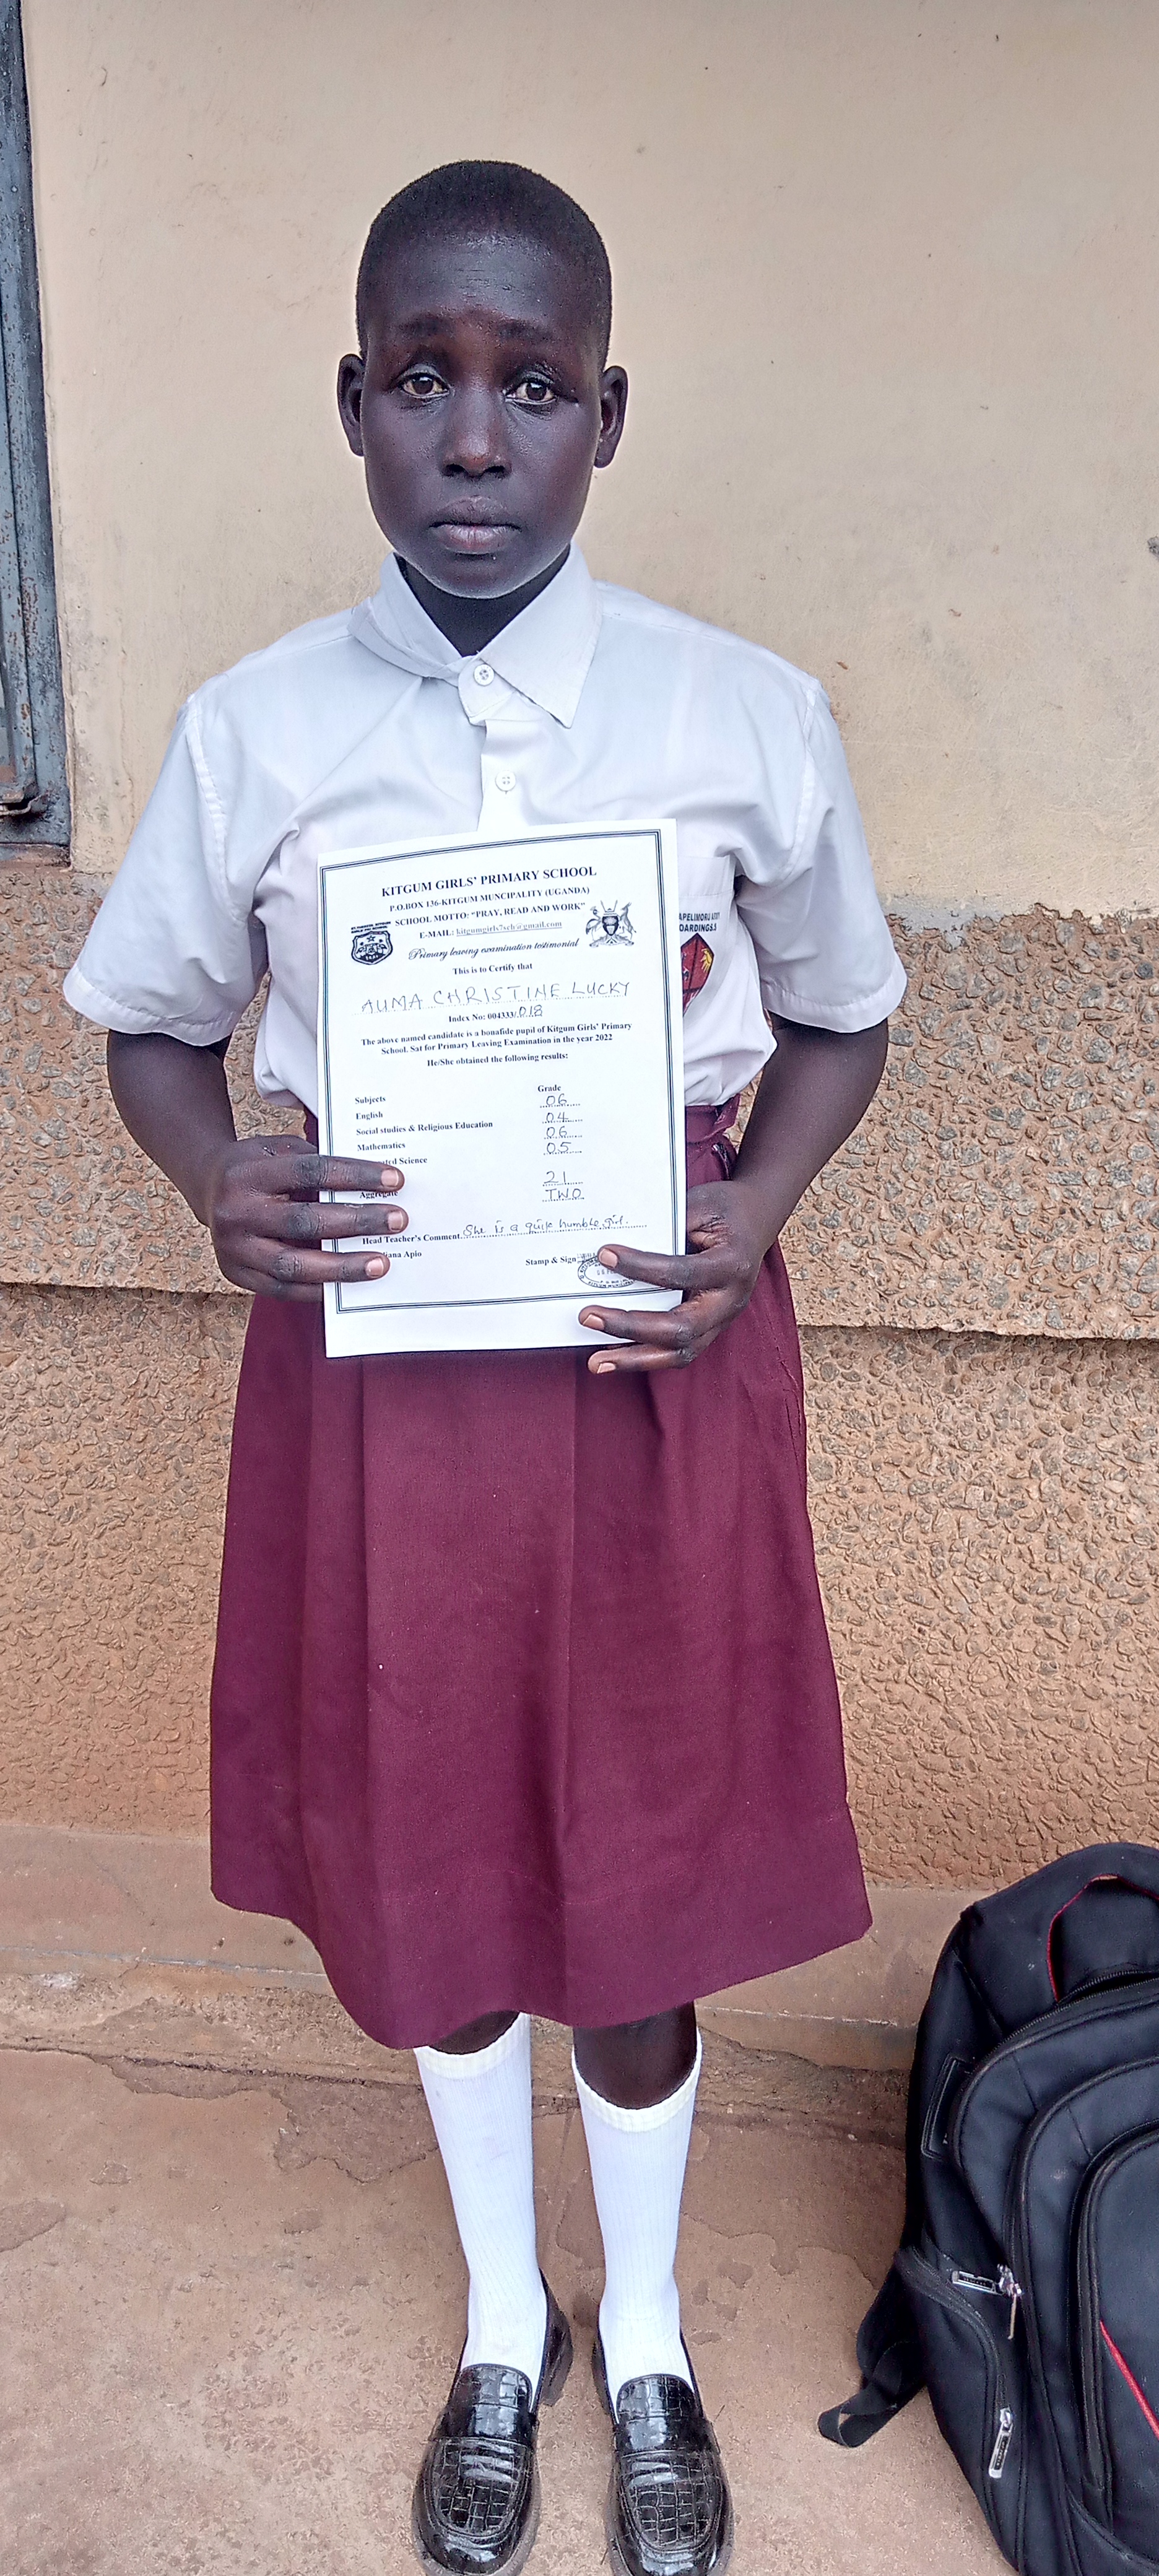 KITGUM GIRLS' PRIMARY SCHOOL
P.O.BOX 136-KITGUM MUNCIPALITY (UGANDA)
SCHOOL MOTTO: "PRAY, READ AND WORK"
E-MAIL: kitgumgirls7sch@gmail.com
Primary leaving examination testimonial
This is to Certify that
AUMA CHRISTINE LUCKY
Index No: 004333/018
The above named candidate is a bonafide pupil of Kitgum Girls' Primary
School. Sat for Primary Leaving Examination in the year 2022
He/She obtained the following results:
Grade
Subjects 06
English 04
Social studies & Religious Education 06
Mathematics 05
Science
21
Aggregate TWO
Head Teacher's Comment She is a quite humble girl.
Apio Stamp & Sign